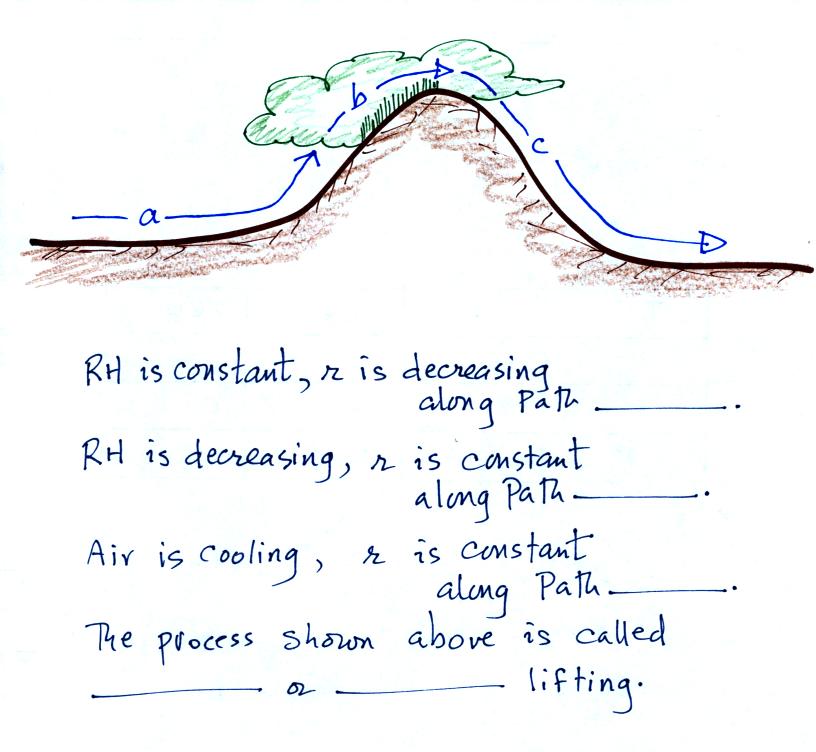 b
c
a
RH is constant, r is decreasing
along Path ________.
RH is decreasing, r is constant
along Path ________.
Air is cooling, r is constant
along Path ________.
The process shown above is called
________ or ________ lifting.